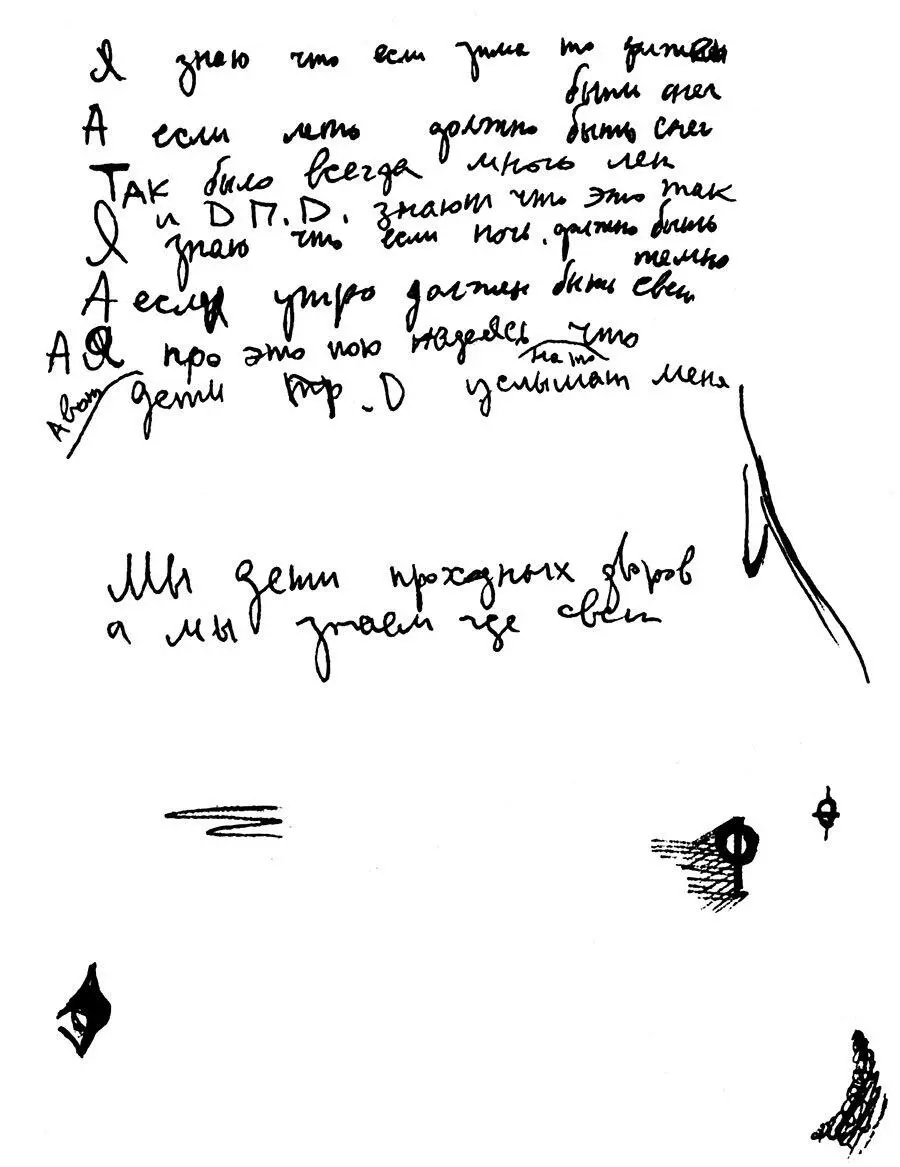 Я знаю что если зима то должен
быть снег
А если лето должно быть снег
Так было всегда много лет
и Д П. D. знают что это так
Я знаю что если ночь должно быть
темно
А если утро должен быть свет
А Я про это пою надеясь что
на то
А вот дети пр. D услышат меня
Мы дети проходных дворов
а мы знаем где свет